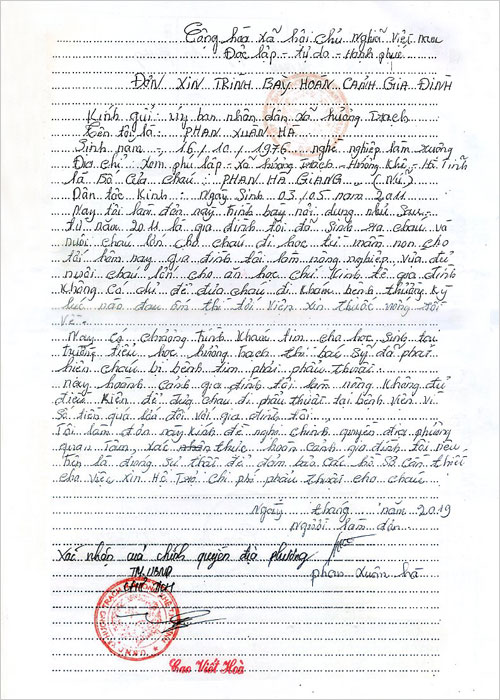 Cộng hòa xã hội chủ nghĩa Việt Nam
Độc lập - tự do - Hạnh phúc
ĐƠN XIN TRÌNH BAY HOÀN CẢNH GIA ĐÌNH
Kính gửi: ủy ban nhân dân xã hương Trạch
Tên tôi là: PHAN XUÂN HÀ
Sinh năm: 16/10/1976 nghề nghiệp làm ruộng
Địa chỉ: xóm phú lập - xã hương Trạch - Hương Khê - Hà Tĩnh
là Bố của cháu: PHAN HÀ GIANG (Nữ)
Dân tộc Kinh: Ngày Sinh 03/05 năm 2011
Nay tôi làm đơn này trình bay nội dung như sau:
từ năm 2011 là gia đình tôi đã sinh ra cháu và
nuôi cháu lớn cho cháu đi học từ mầm non cho
tới hôm nay gia đình tôi làm nông nghiệp vừa đủ
nuôi cháu lớn cho ăn học chứ kinh tế gia đình
không có đủ để đưa cháu đi khám bệnh thường kỳ
lúc nào đau ốm thì tới viện xin thuốc uống rồi
về.
Nay có chương trình khám tim cho học sinh tại
trường tiểu học hương trạch thì bác sỹ đã phát
hiện cháu bị bệnh tim phải phẩu thuật.
Này hoành cảnh gia đình tôi làm nông không đủ
điều kiện để đưa cháu đi phẩu thuật tại bệnh viện vì
số tiền quá lớn đối với gia đình tôi.
Tôi làm đơn này kính đề nghị chính quyền địa phương
quan tâm, xác nhân thức hoàn cảnh gia đình tôi nêu
trên là đúng sự thật để đảm bảo các hồ sơ cần thiết
cho việc xin hỗ trợ chi phí phẩu thuật cho cháu
Ngày tháng năm 2019
Người làm đơn
Xác nhận của chính quyền địa phương
phan xuân hà
TM.UBND
CHỦ TỊCH
Cao Viết Hoà